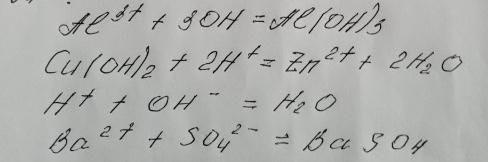 Al³⁺ + 3OH = Al(OH)₃
Cu(OH)₂ + 2H⁺ = Zn²⁺ + 2H₂O
H⁺ + OH⁻ = H₂O
Ba²⁺ + SO₄²⁻ = BaSO₄